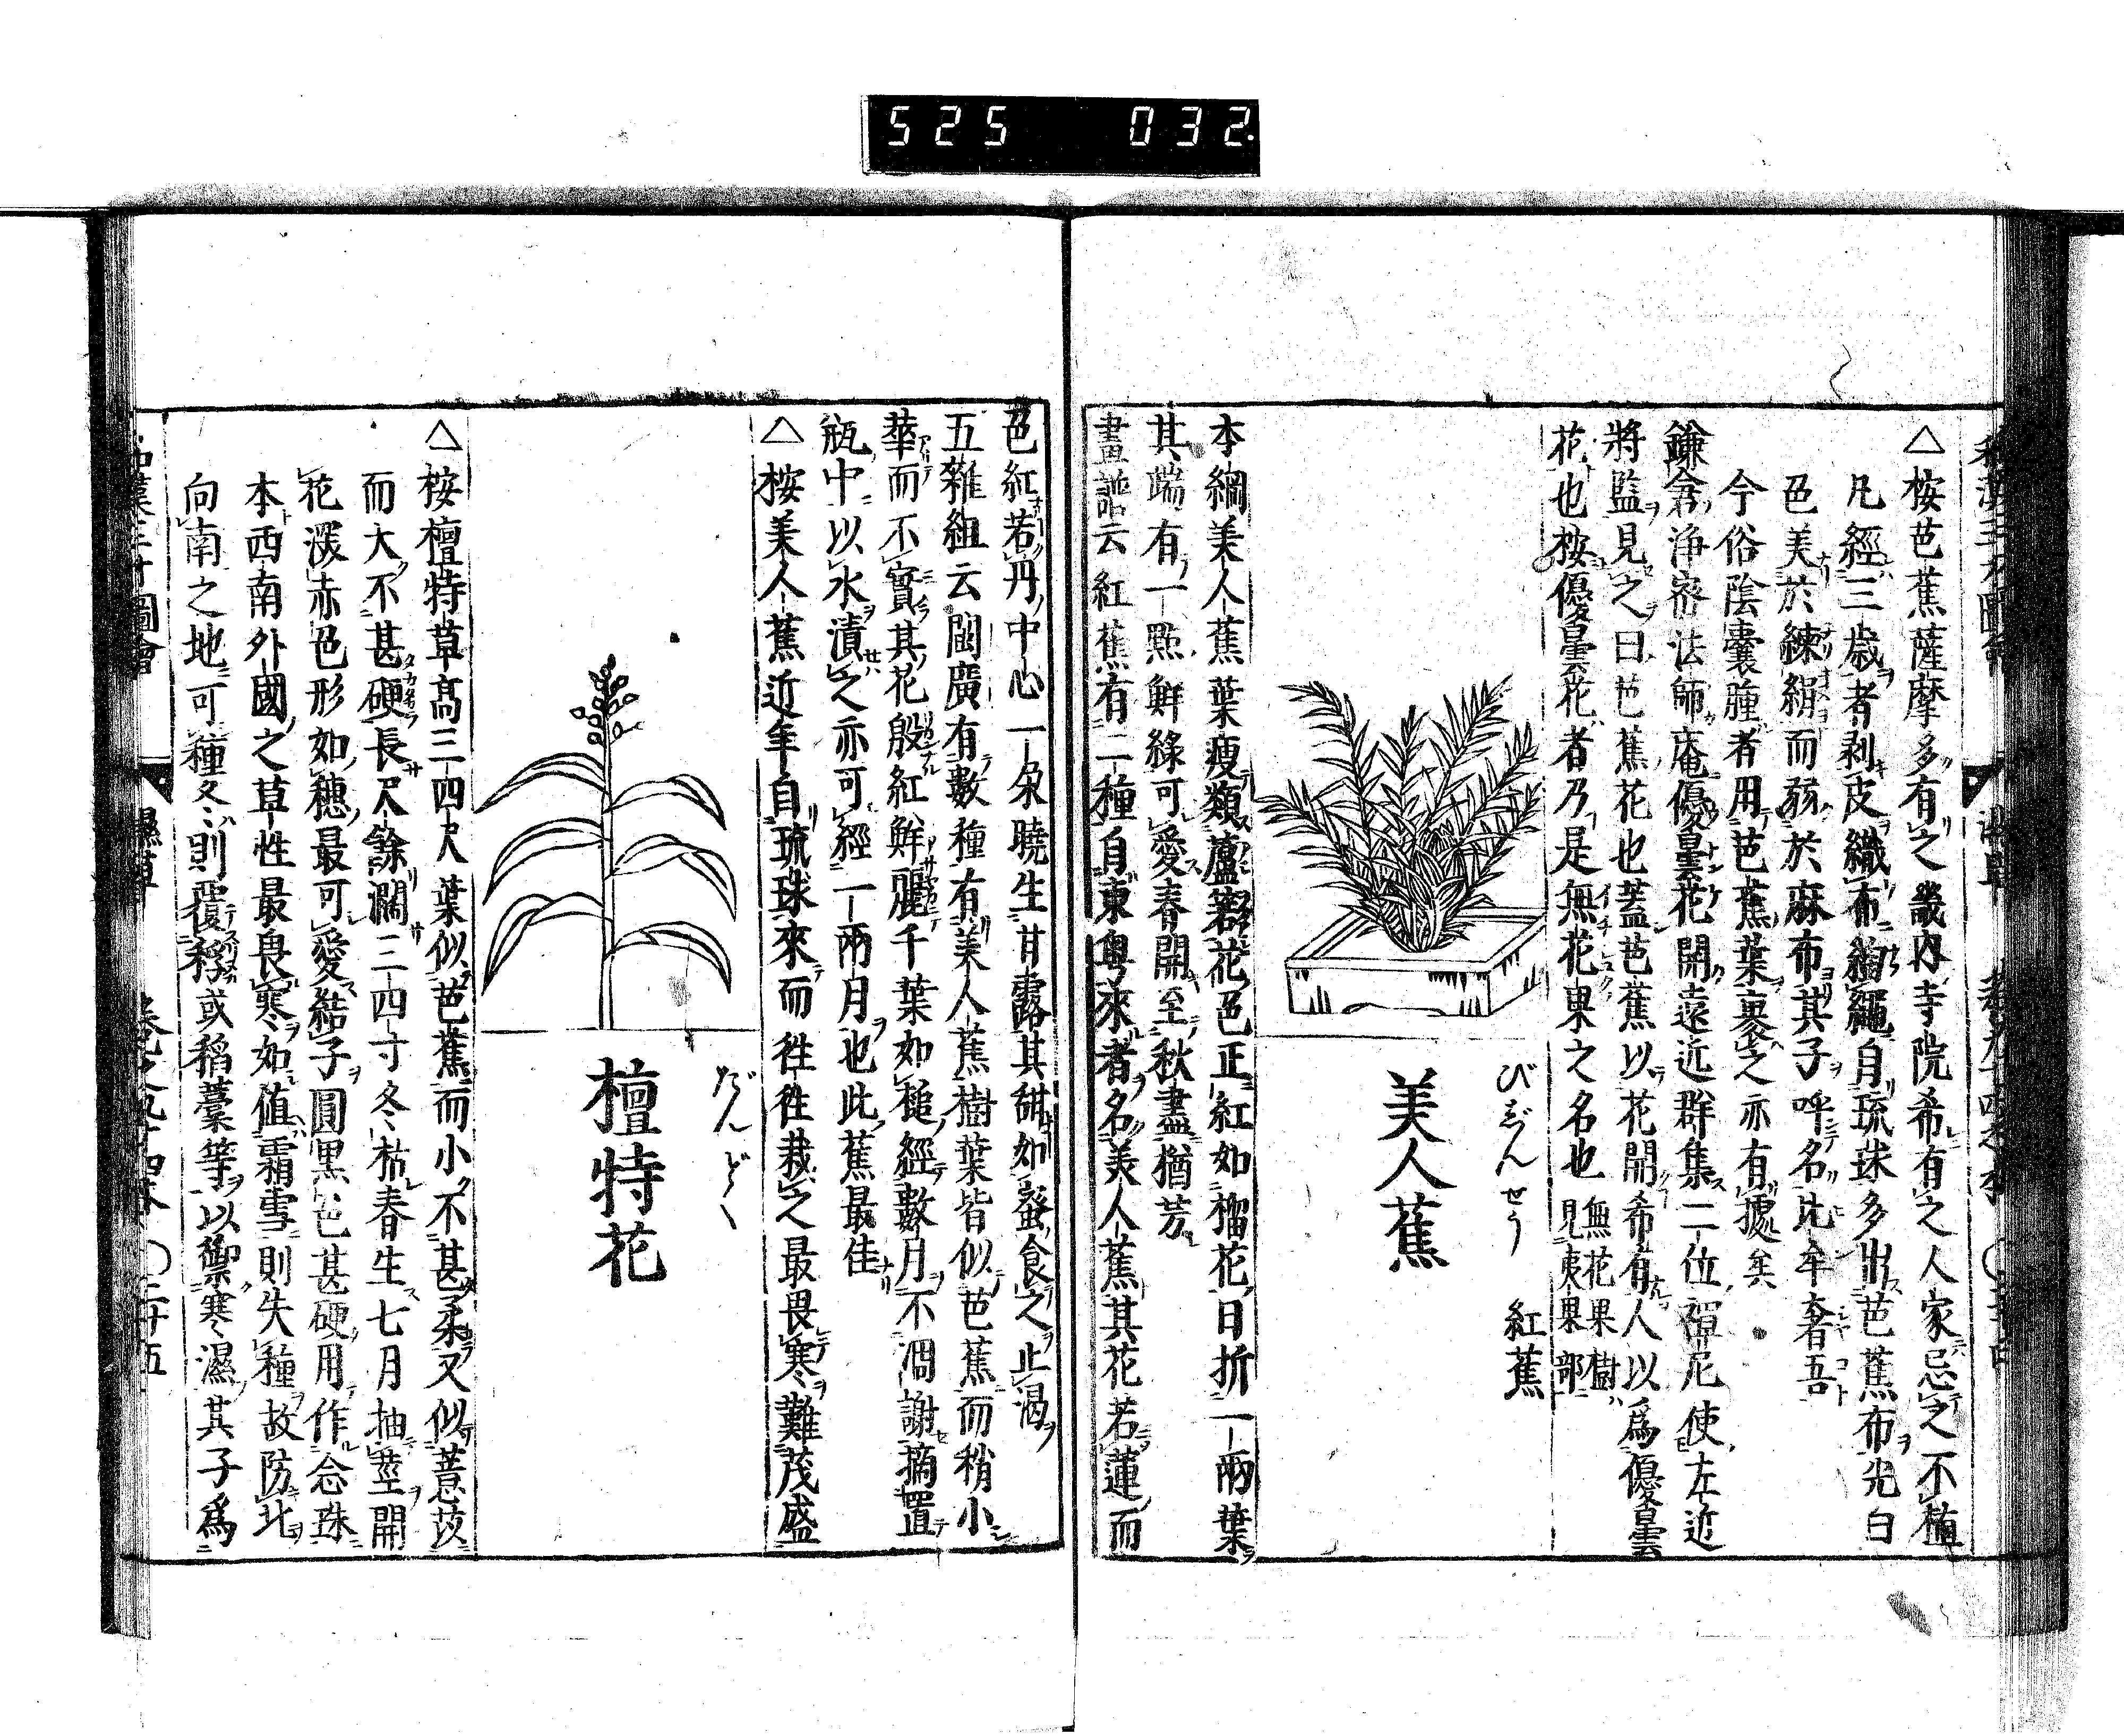 525 032.
△按芭蕉薩摩多有之畿内寺院希有之人家忌之不植
凡經三歳者剥皮織布綯繩自琉球多出芭蕉布光白
色美於練絹而弱於麻布其子呼名比牟奢吾
今俗陰囊腫者用芭蕉葉裹之亦有據矣
鎌倉浄密法師庵優曇花開遠近群集二位禪尼使左近
將監見之曰芭蕉花也蓋芭蕉以花開希有人以爲優曇
花也按優曇花者乃是無花果之名也 無花果樹見夷果部
びじんせう
紅蕉
美人蕉
本綱美人蕉葉瘦類蘆箬花色正紅如榴花日折一兩葉
其端有一點鮮綠可愛春開至秋盡猶芳
畫譜云紅蕉有二種自東粤來者名美人蕉其花若蓮而
色紅若丹中心一朶曉生甘露其甜如蜜食之止渴
五雜組云閩廣有數種有美人蕉樹葉皆似芭蕉而稍小
華而不實其花殷紅鮮麗千葉如槌經數月不凋謝摘置
瓶中以水漬之亦可經一兩月也此蕉最佳
△按美人蕉近年自琉球來而徃徃栽之最畏寒難茂盛
だんどく
檀特花
△按檀特草髙三四尺葉似芭蕉而小不甚柔又似薏苡
而大不甚硬長尺餘濶三四寸冬枯春生七月抽莖開
花深赤色形如穗最可愛結子圓黒色甚硬用作念珠
本西南外國之草性最畏寒如值霜雪則失種故防北
向南之地可種冬則覆稃或稻藁等以禦寒濕其子爲